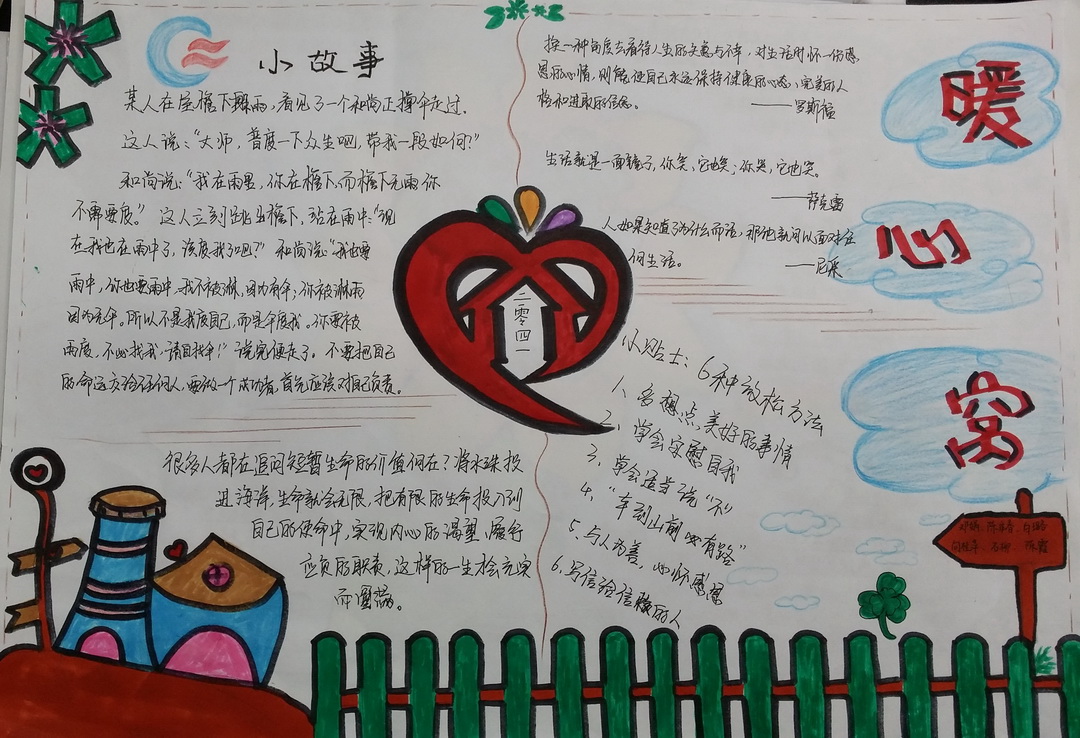 小故事
某人在屋檐下躲雨，看见了一个和尚正撑伞走过．
这人说："大师，普度一下众生吧，带我一段如何？"
和尚说："我在雨里，你在檐下，而檐下无雨你
不需要度。"这人立刻跳出檐下，站在雨中："现
在我也在雨中了，该度我了吧？"和尚说："我也在
雨中，你也在雨中，我不被淋，因为有伞；你被淋雨
因为无伞。所以不是我度自己，而是伞度我。你要被
雨度，不必找我，请自找伞！"说完便走了。不要把自己
的命运交给任何人，要做一个成功者，首先应该对自己负责。
很多人都在追问短暂生命的价值何在？将水珠投
进海洋，生命就会无限，把有限的生命投入到
自己的使命中，实现内心的渴望，履行
应负的职责，这样的一生才会充实
而圆满。
二零四一
换一种角度去看待人生的失意与不幸，对生活时怀一份感
恩的心情，则能使自己永远保持健康的心态，完美的人
格和进取的信念。
——罗斯福
生活就是一面镜子，你笑，它也笑；你哭，它也哭。
——萨克雷
人如果知道了为什么而活，那他就可以面对任
何生活。
——尼采
小贴士：6种放松方法
1、多想点美好的事情
2、学会安慰自我
3、学会适当说"不"
4、"车到山前必有路"
5、与人为善，心怀感恩
6、写信给信赖的人
暖
心
窝